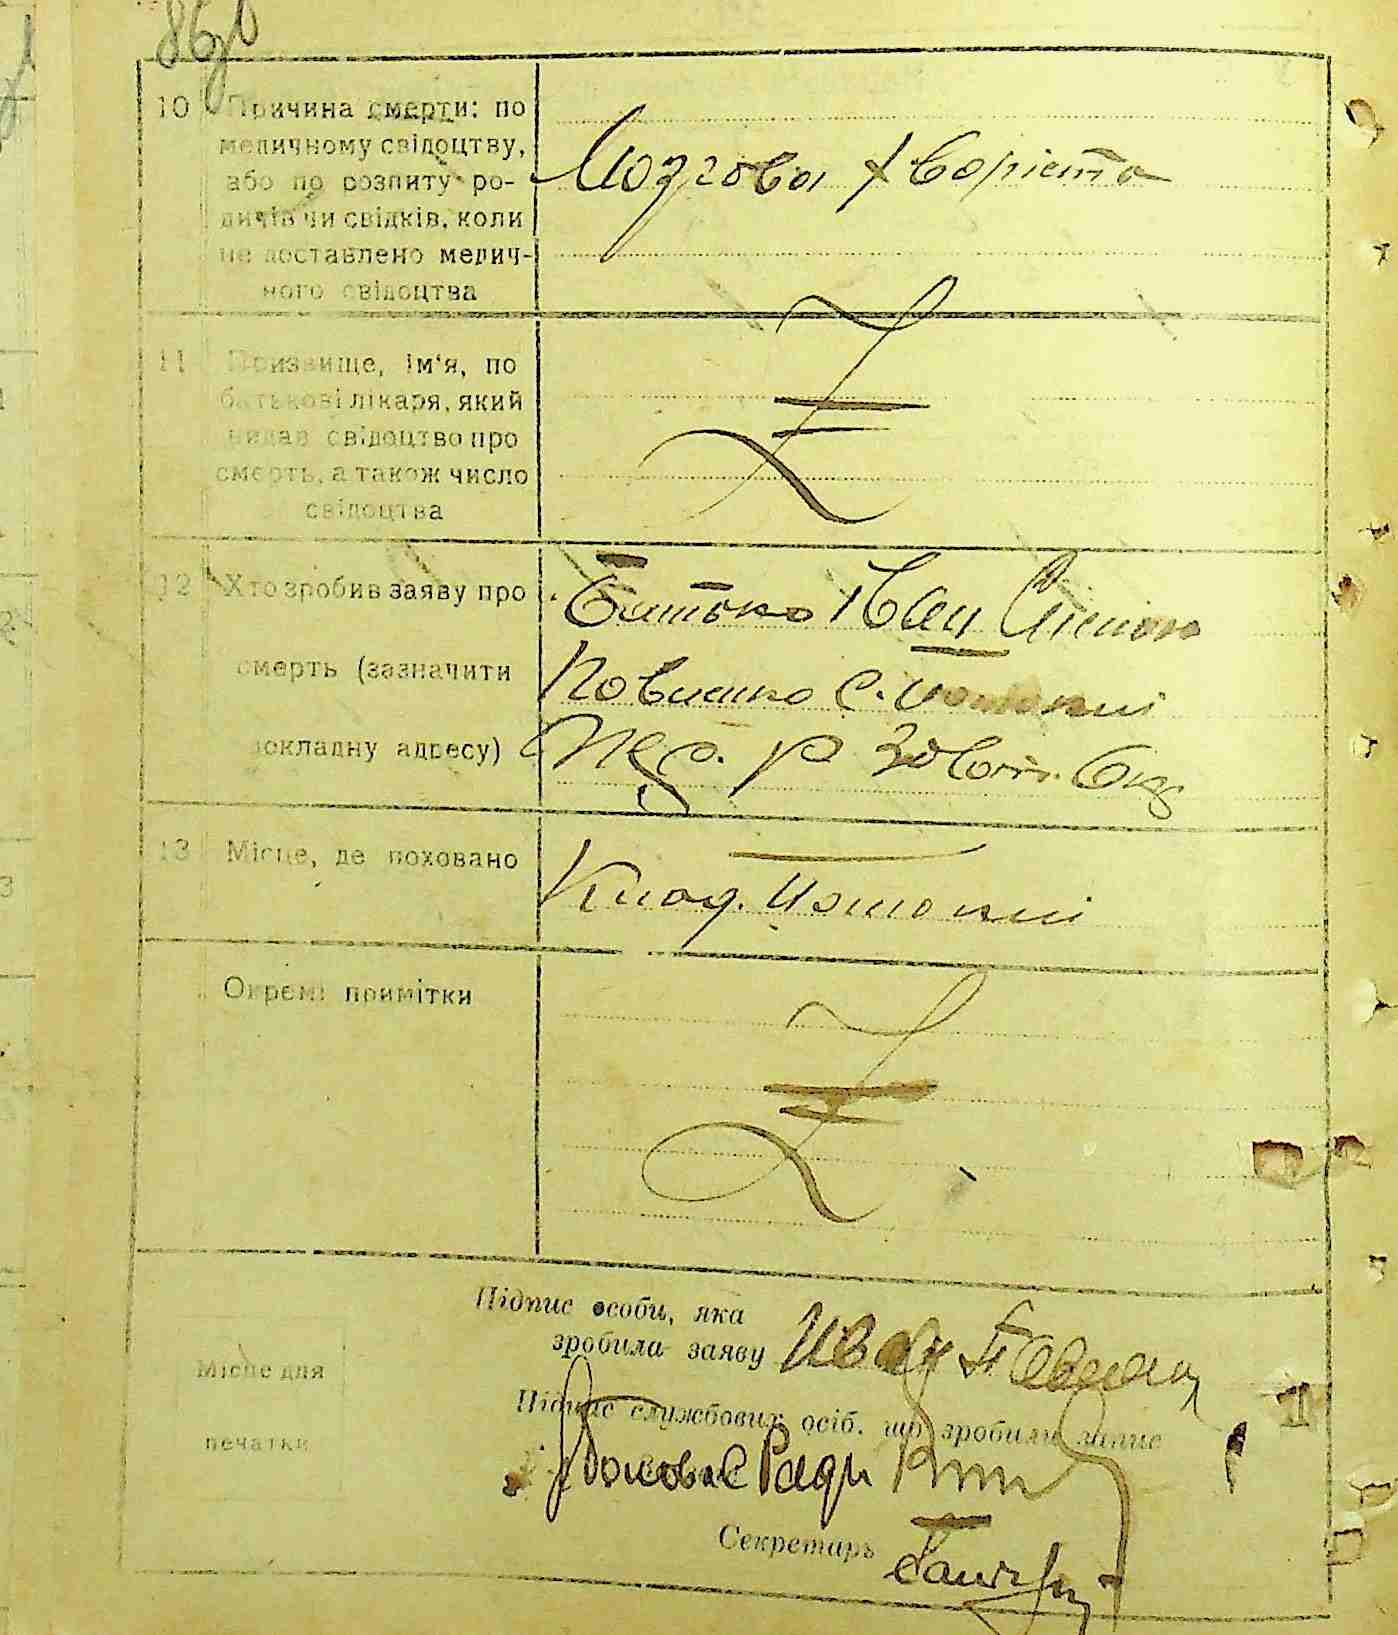 86зв
10 Причина смерти: по
медичному свідоцтву,
або по розпиту ро-
дичів чи свідків, коли
не доставлено медич-
ного свідоцтва
Мозгова хворіста
11 Призвище, ім'я, по
батькові лікаря, який
видав свідоцтво про
смерть, а також число
свідоцтва
12 Хто зробив заяву про
смерть (зазначити
докладну адресу)
Батько Іван
с.
р Золот. Окр
13 Місце, де поховано
Клад.
Окремі примітки
Підпис особи, яка
зробила заяву Иван
Підпис службових осіб, що зробили запис
Голова С Ради
Секретарь
Місце для
печатки
1